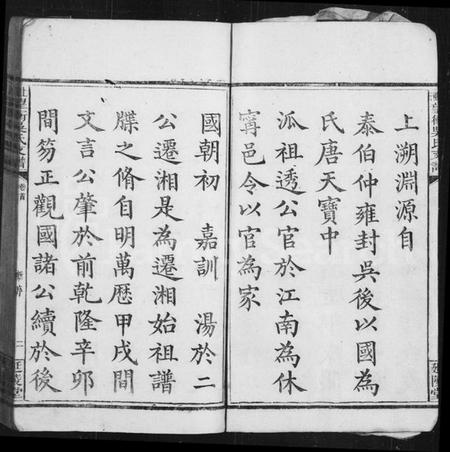 上溯淵源自
泰伯仲雍封吳後以國為
氏唐天寶中
派祖透公官於江南為休
寧邑令以官為家
國朝初 嘉訓 湯於二
公遷湘是為遷湘始祖譜
牒之脩自明萬歷甲戌間
文言公肇於前乾隆辛卯
間笏正觀國諸公續於後